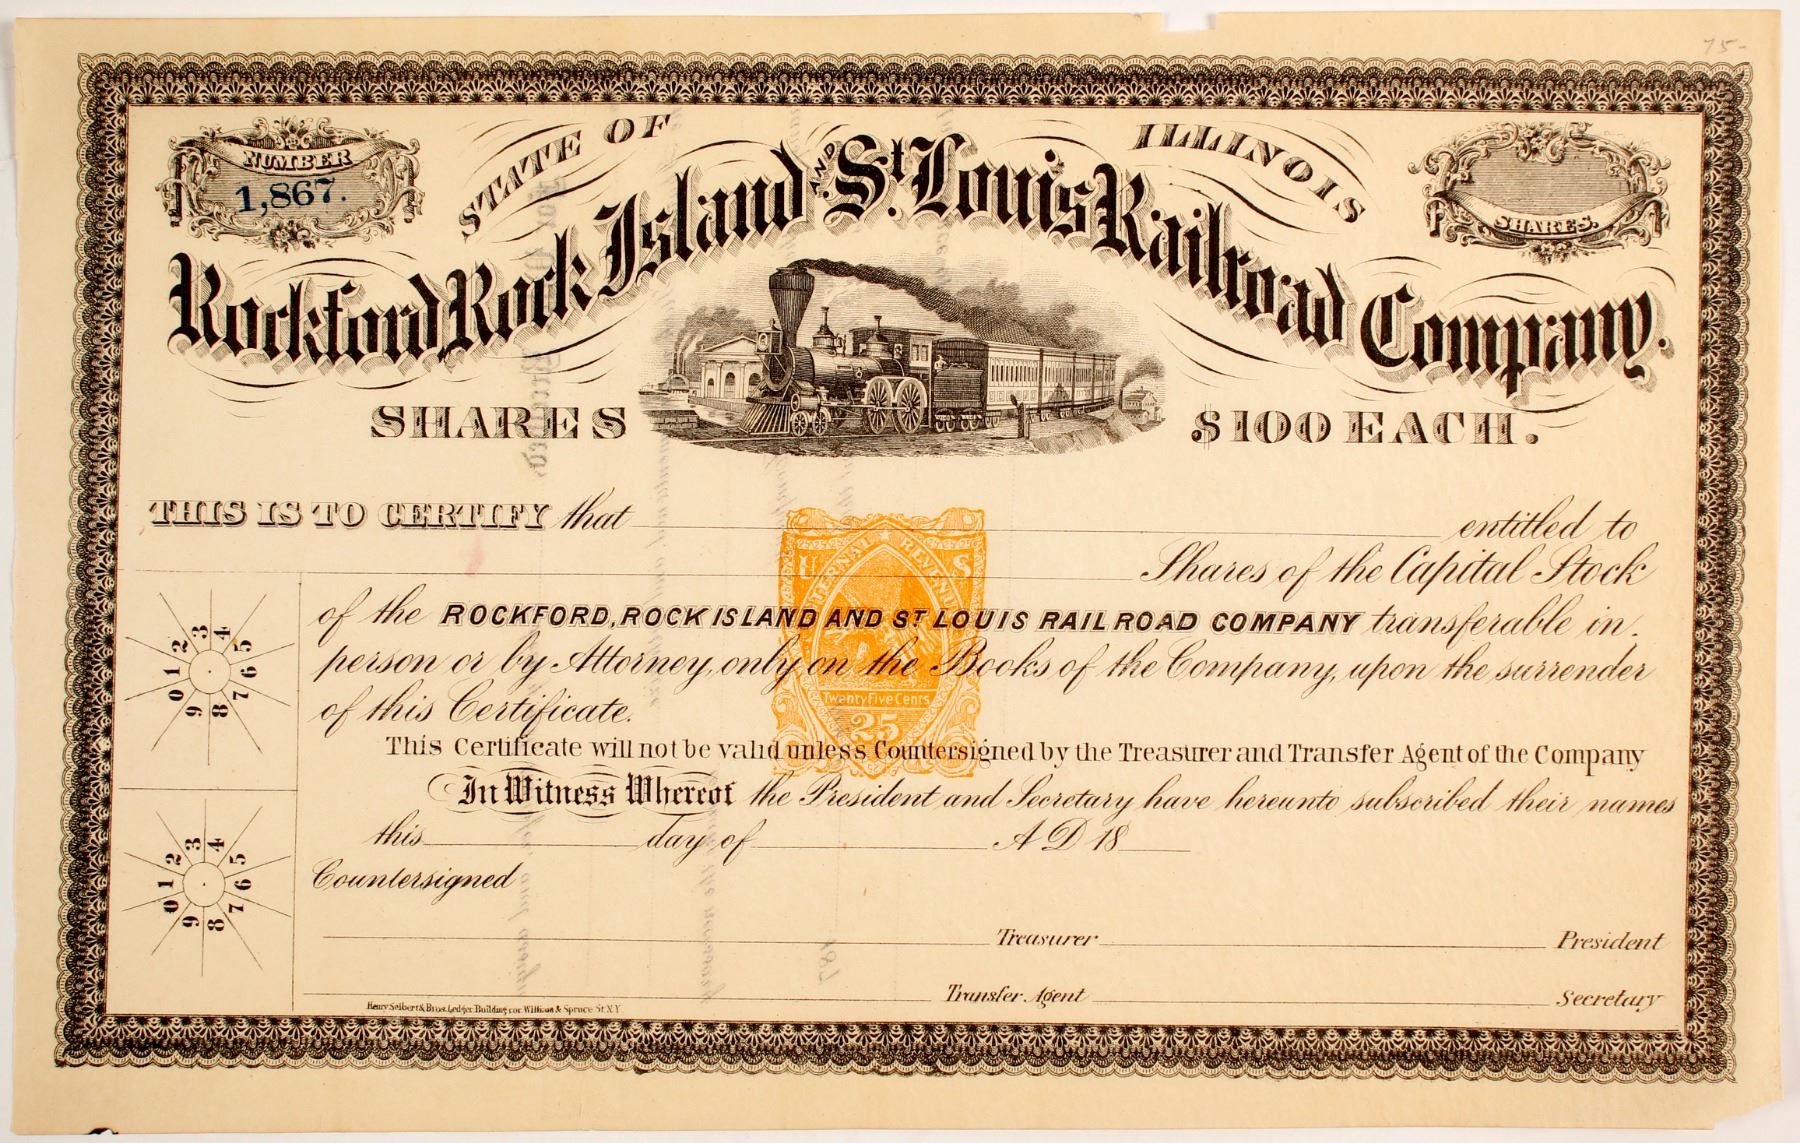 75-
NUMBER
1,867.
STATE OF ILLINOIS
SHARES.
Rockford, Rock Island AND St. Louis Railroad Company.
SHARES $100 EACH.
THIS IS TO CERTIFY that entitled to
Shares of the Capital Stock
of the ROCKFORD, ROCK ISLAND AND ST LOUIS RAILROAD COMPANY transferable in
person or by Attorney, only on the Books of the Company, upon the surrender
of this Certificate.
U INTERNAL REVENUE S
Twenty Five Cents
25
This Certificate will not be valid unless Countersigned by the Treasurer and Transfer Agent of the Company
In Witness Whereof the President and Secretary have hereunto subscribed their names
this day of A D 18
Countersigned
Treasurer President
Transfer Agent Secretary
Henry Seibert & Bros. Ledger Building cor. William & Spruce St N.Y.
0 1 2 3 4 5 6 7 8 9
0 1 2 3 4 5 6 7 8 9